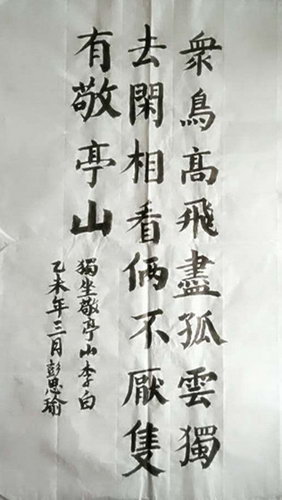 衆鳥高飛盡孤雲獨
去閑相看倆不厭隻
有敬亭山
獨坐敬亭山李白
乙未年三月彭思瑜